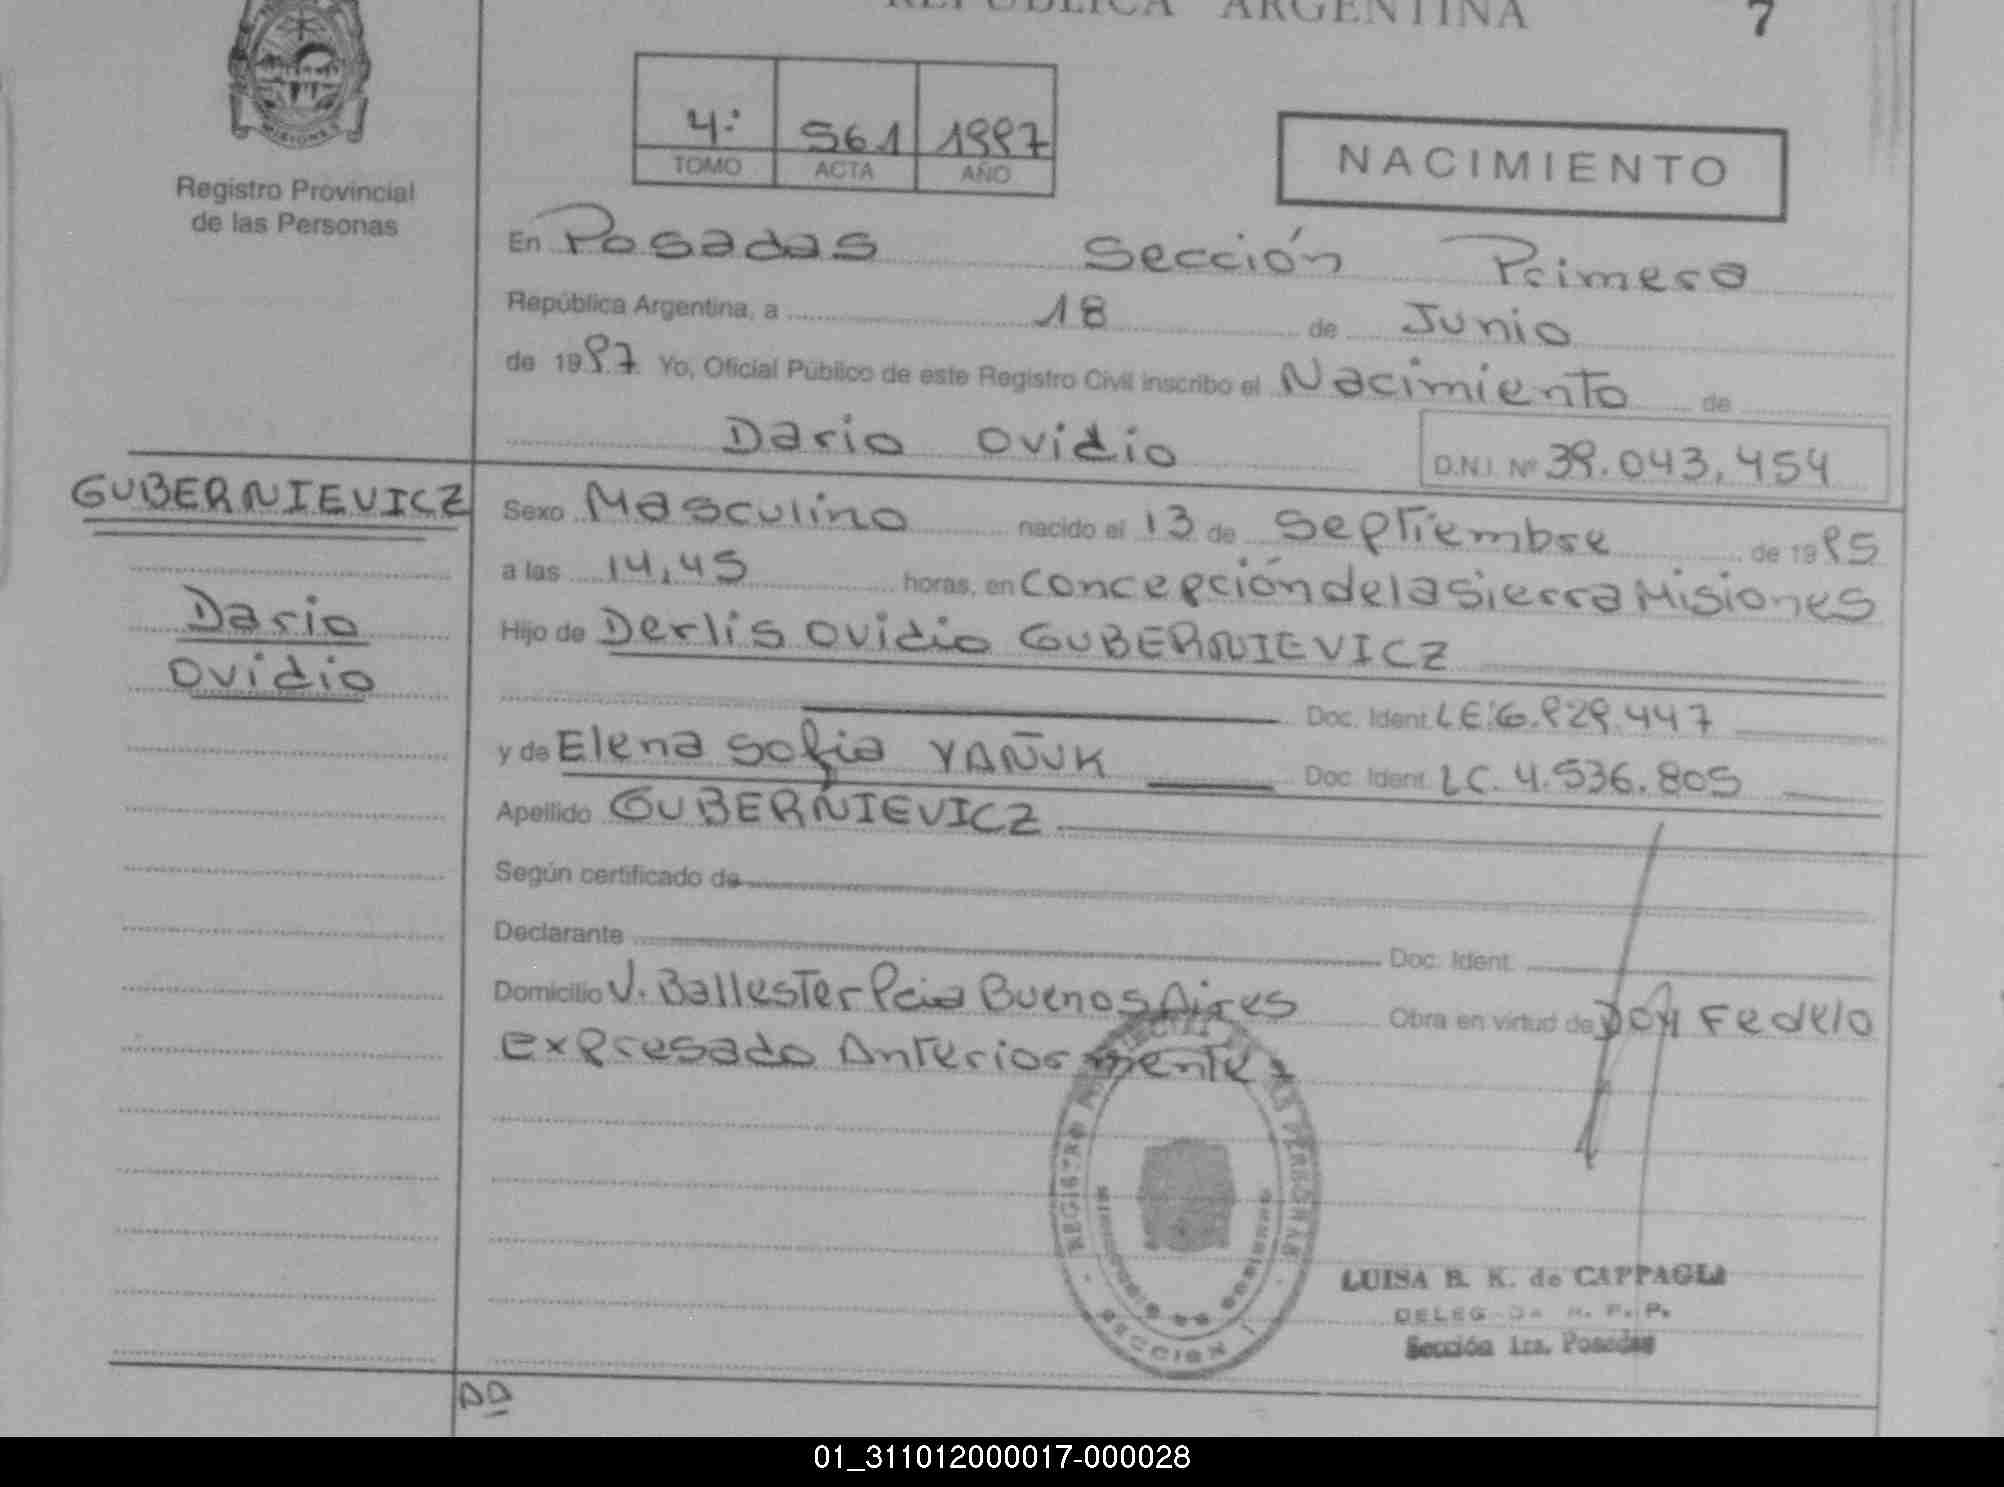 REPÚBLICA ARGENTINA
7
MISIONES
Registro Provincial
de las Personas
4º 561 1997
TOMO ACTA AÑO
NACIMIENTO
En Posadas Sección Primera
República Argentina, a 18 de Junio
de 1997 Yo, Oficial Público de este Registro Civil inscribo el Nacimiento de
Dario Ovidio
D.N.I. Nº 39.043,454
GUBERNIEVICZ
Dario
Ovidio
Sexo Masculino nacido el 13 de Septiembre de 1995
a las 14,45 horas, en Concepción de la Sierra Misiones
Hijo de Derlis Ovidio GUBERNIEVICZ
Doc. Ident. LE: 6.829.447
y de Elena Sofia YAÑUK Doc. Ident. LC. 4.536.805
Apellido GUBERNIEVICZ
Según certificado de
Declarante Doc. Ident.
Domicilio V. Ballester Pcia Buenos Aires Obra en virtud de
expresado Anteriormente
REGISTRO DE LAS PERSONAS
SECCION 1
LUISA B. K. de CAPPAGLI
DELEGADA R. P. P.
Sección 1ra. Posadas
01_311012000017-000028